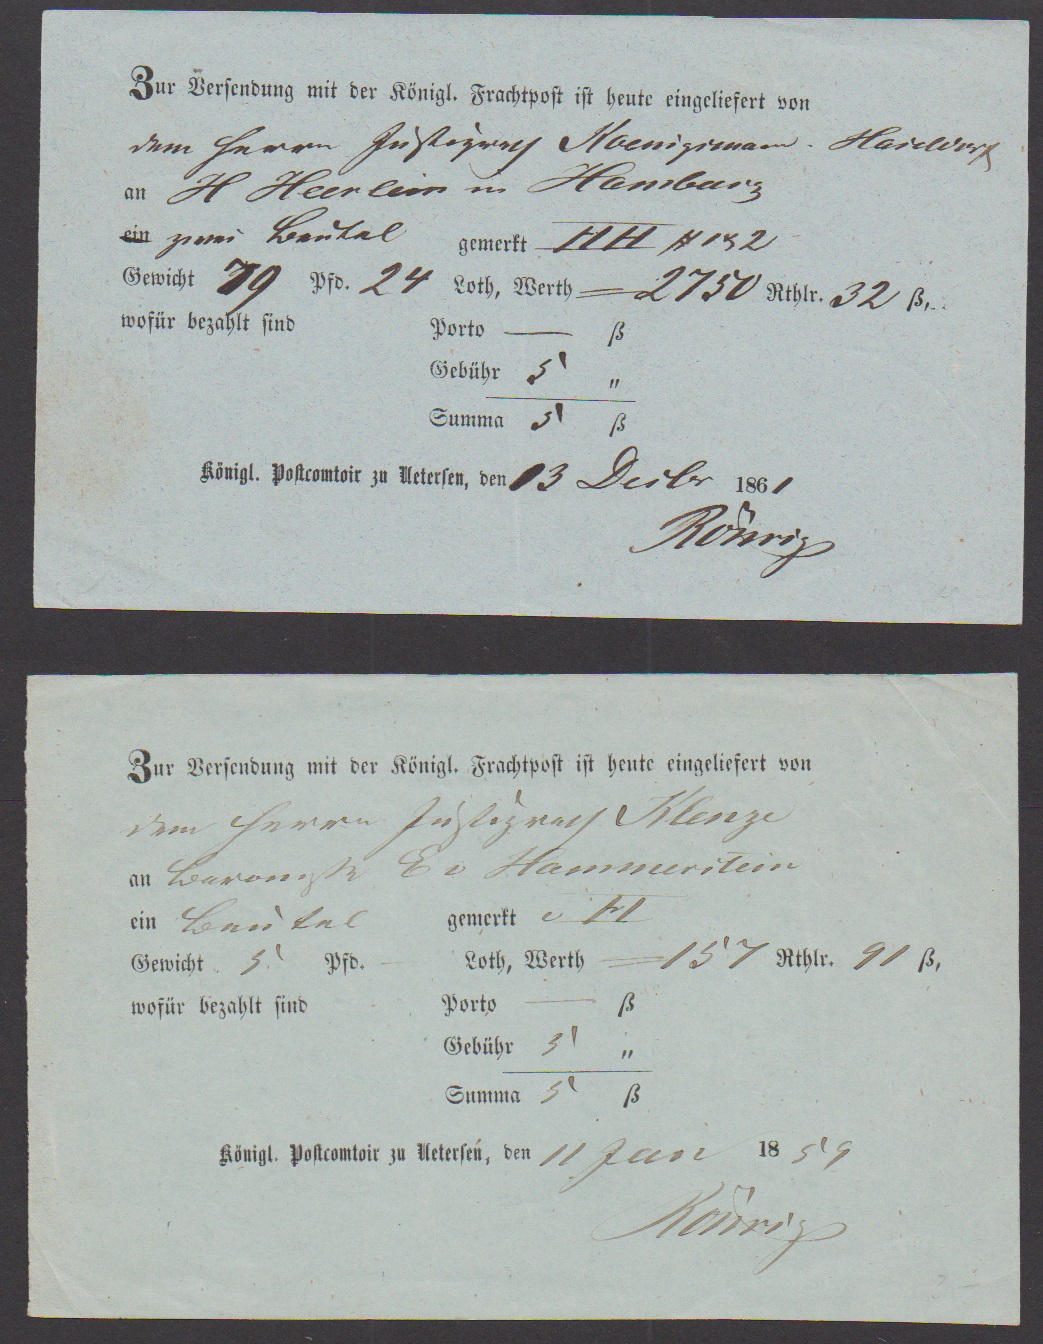 Zur Versendung mit der Königl. Frachtpost ist heute eingeliefert von
dem Herrn Justizrath Koenigsmann
an H Heerlein in Hamburg
ein zwei Beutel gemerkt HH # 132
Gewicht 79 Pfd. 24 Loth, Werth 2750 Rthlr. 32 ß,
wofür bezahlt sind Porto — ß
Gebühr 5 „
Summa 5 ß
Königl. Postcomtoir zu Uetersen, den 13 Decbr 1861
Zur Versendung mit der Königl. Frachtpost ist heute eingeliefert von
dem Herrn Justizrath Klenze
an Baronesse E v Hammerstein
ein Beutel gemerkt H
Gewicht 5 Pfd. — Loth, Werth 157 Rthlr. 91 ß,
wofür bezahlt sind Porto — ß
Gebühr 5 „
Summa 5 ß
Königl. Postcomtoir zu Uetersen, den 11 Jan 1859